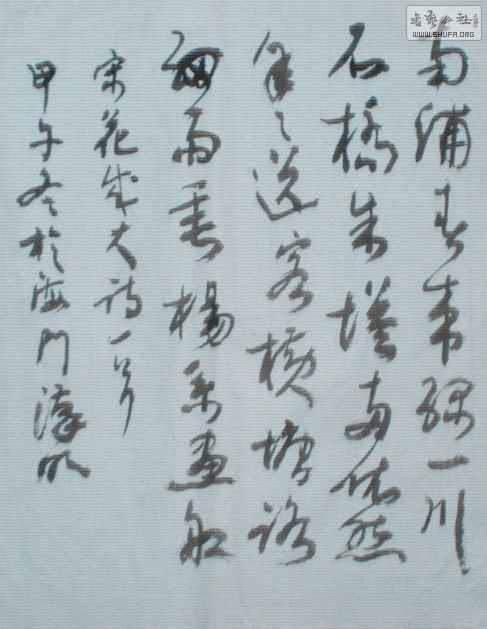 南浦春来绿一川
石橋朱塔两依然
年々送客横塘路
细雨垂楊系画船
宋范成大诗一首
甲午冬於海门
書藝公社
WWW.SHUFA.ORG